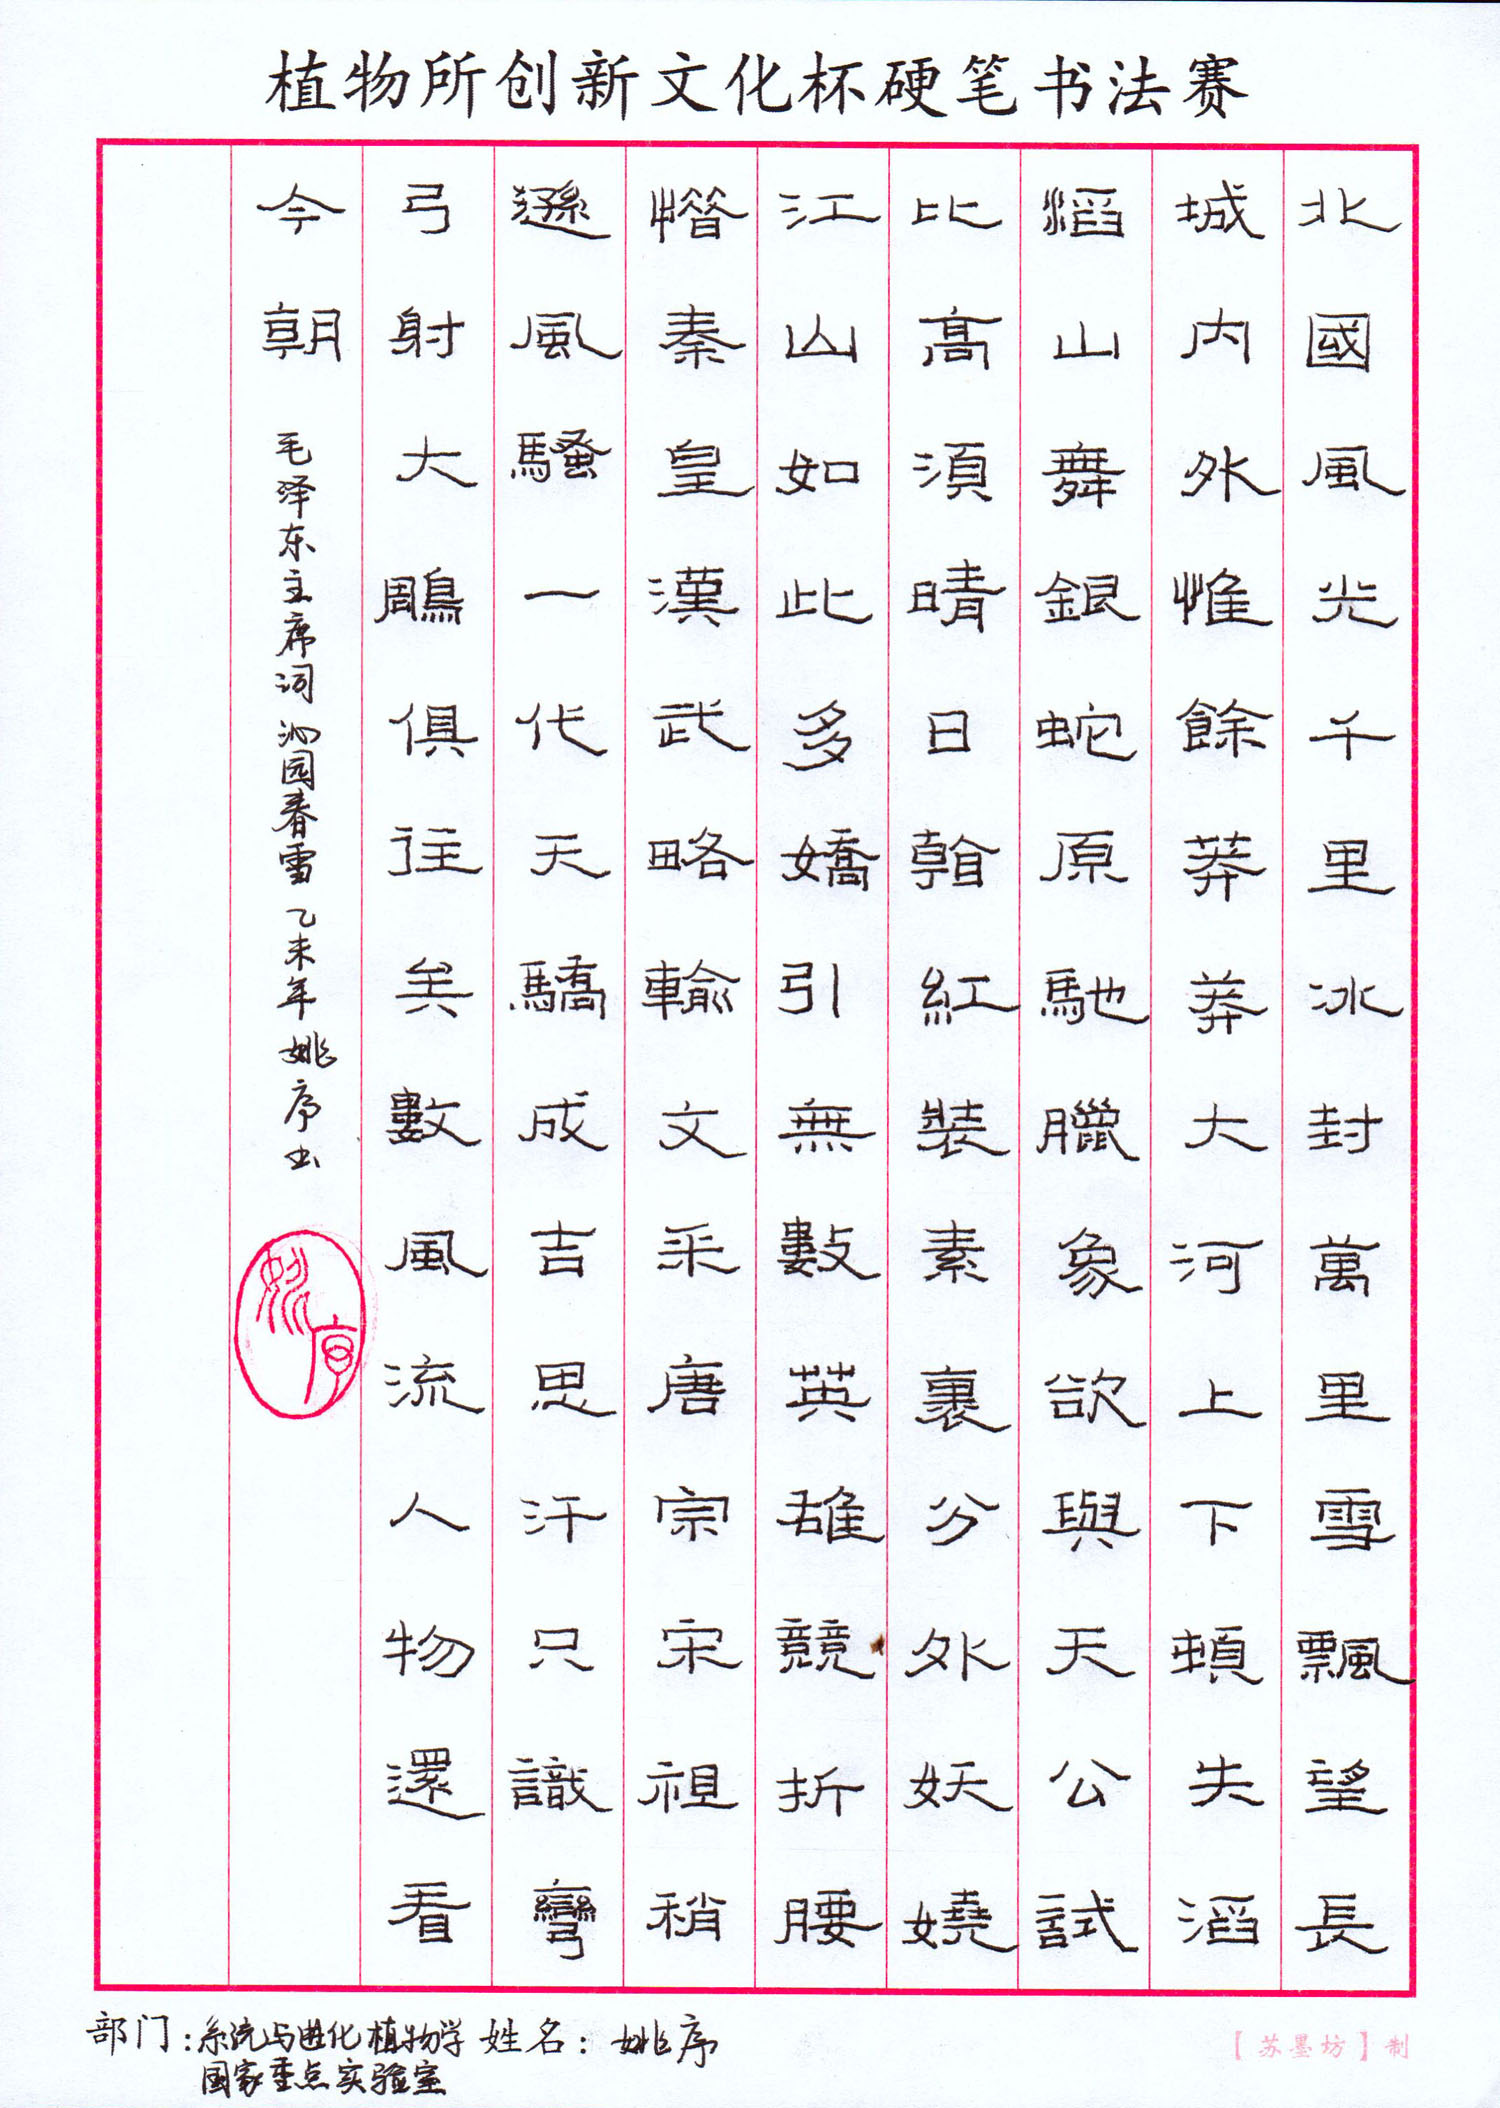 植物所创新文化杯硬笔书法赛
北國風光千里冰封萬里雪飄望長
城内外惟餘莽莽大河上下頓失滔
滔山舞銀蛇原馳臘象欲與天公試
比高須晴日看紅裝素裹分外妖嬈
江山如此多嬌引無數英雄競折腰
惜秦皇漢武略輸文采唐宗宋祖稍
遜風騷一代天驕成吉思汗只識彎
弓射大鵰俱往矣數風流人物還看
今朝
毛泽东主席词 沁园春雪 乙未年 姚序书
姚序
部门：系统与进化植物学 姓名：姚序
国家重点实验室
【苏墨坊】制